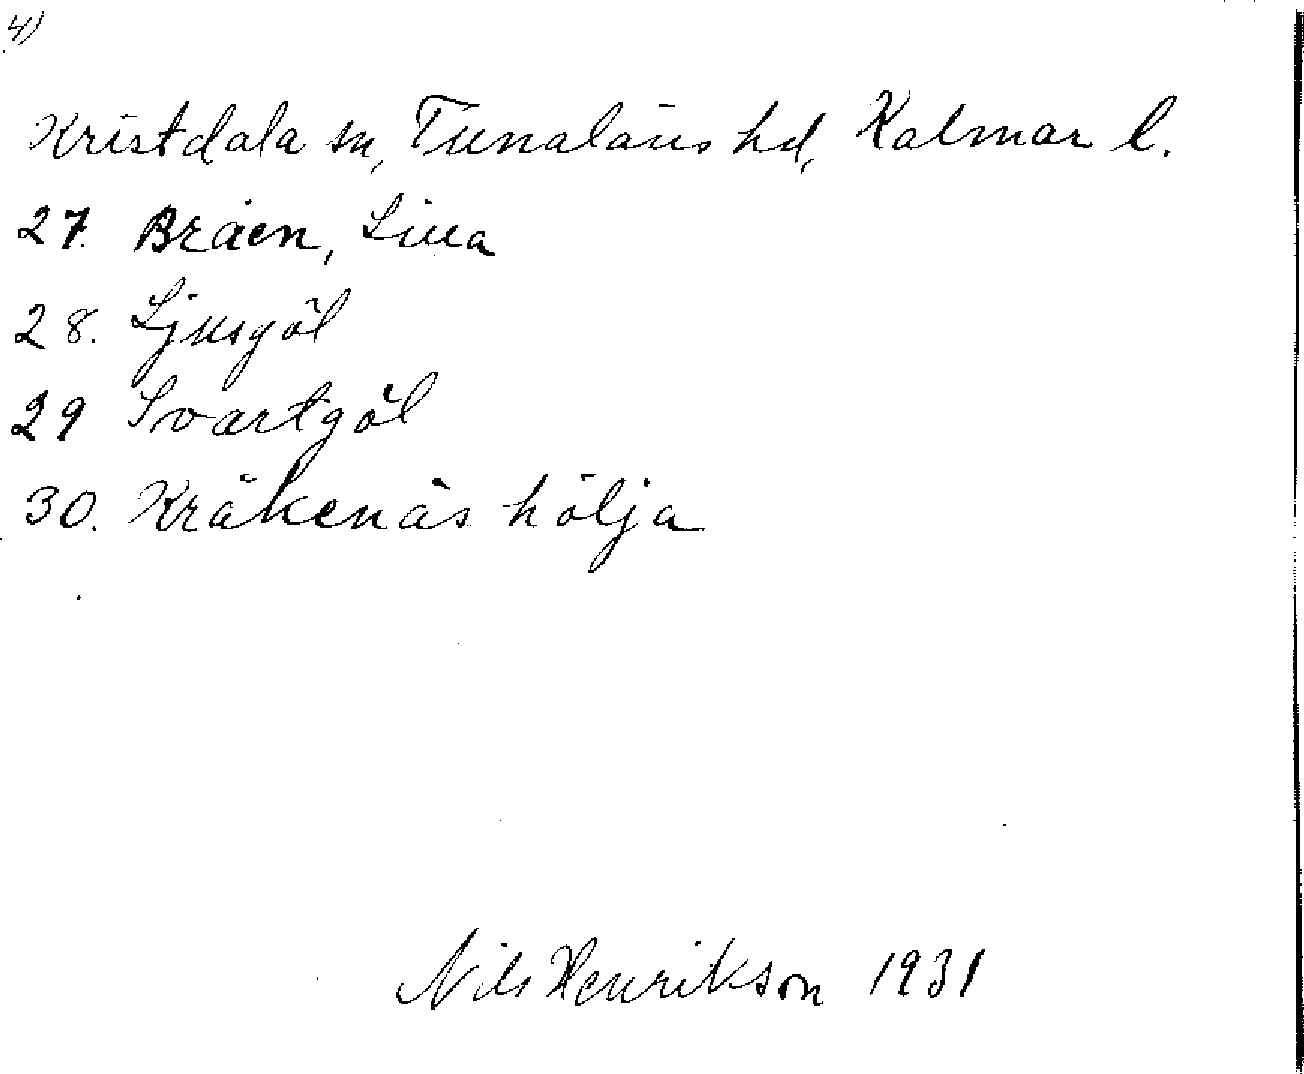 4)
Kristdala sn, Tunaläns hd, Kalmar l.
27. Bråen, Lilla
28. Ljusgöl
29 Svartgöl
30. Kråkenäs hölja
Nils Henrikson 1931